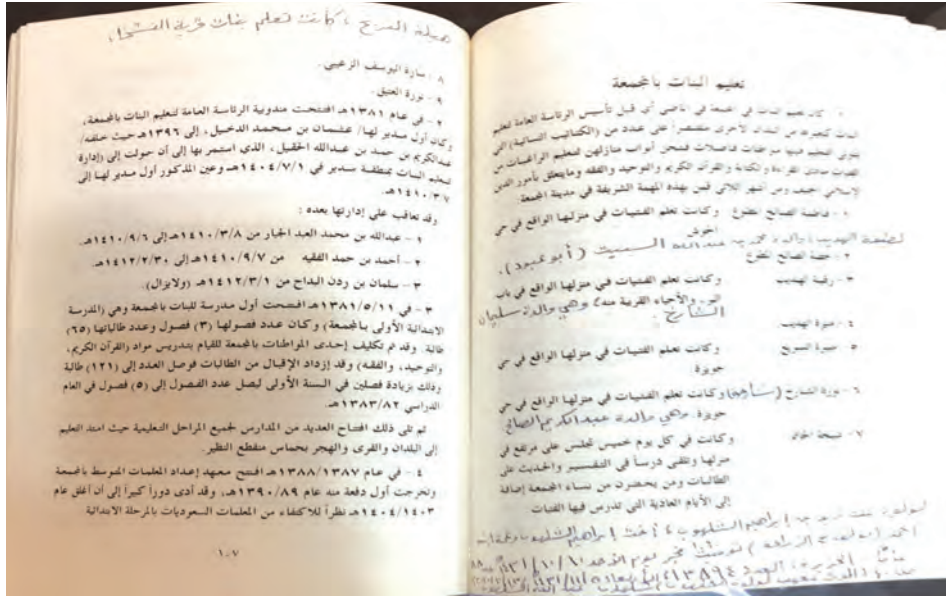 تعليم البنات بالمجمعة
١ - كان تعليم البنات في المجمعة في الماضي أي قبل تأسيس الرئاسة العامة لتعليم
البنات كغيرها من البلدان الأخرى مقتصراً على عدد من (الكتاتيب النسائية) التي
يتولى التعليم فيها مواطنات فاضلات فتحن أبواب منازلهن لتعليم الراغبات من
الفتيات مبادئ القراءة والكتابة والقرآن الكريم والتوحيد والفقه ومايتعلق بأمور الدين
الإسلامي الحنيف ومن أشهر اللاتي قمن بهذه المهمة الشريفة في مدينة المجمعة:
١ - فاطمة الصالح المطوع وكانت تعلم الفتيات في منزلها الواقع في حي
الحوش
لطيفة الهديب والدة محمد عبدالله السبيت (أبو عبود).
٢ - حصة الصالح المطوع
٣ - رقية الهديب وكانت تعلم الفتيات في منزلها الواقع في باب
البر والأحياء القريبة منه وهي والدة سليمان
الشارخ.
٤ - منيرة الهديب
٥ - منيرة السريح وكانت تعلم الفتيات في منزلها الواقع في حي
حويزة.
٦ - نورة الشارخ وكانت تعلم الفتيات في منزلها الواقع في حي
حويزة. وهي والدة عبدالكريم الصالح
٧ - وكانت في كل يوم خميس تجلس على مرتفع في
منزلها وتلقى درساً في التفسير والحديث على
الطالبات ومن يحضرن من نساء المجمعة إضافة
إلى الأيام العادية التي تدرس فيها الفتيات
إبراهيم أخت إبراهيم
توفيت فجر يوم الأحد
الجزيرة العدد
هيلة السريح، كانت تعلم بنات قرية
٨ - سارة اليوسف الزغيبي.
٩ - نورة العتيق.
٢ - في عام ١٣٨١هـ افتتحت مندوبية الرئاسة العامة لتعليم البنات بالمجمعة،
وكان أول مدير لها/ عثمان بن محمد الدخيل، إلى ١٣٩٦هـ حيث خلفه/
عبدالكريم بن حمد بن عبدالله الحقيل، الذي استمر بها إلى أن حولت إلى (إدارة
تعليم البنات بمنطقة سدير في ١٤٠٤/٧/١هـ وعين المذكور أول مدير لها إلى
١٤١٠/٣/٧هـ.
وقد تعاقب على إدارتها بعده:
١ - عبدالله بن محمد العبد الجبار من ١٤١٠/٣/٨هـ إلى ١٤١٠/٩/٦هـ.
٢ - أحمد بن حمد الفقيه من ١٤١٠/٩/٧هـ إلى ١٤١٢/٢/٣٠هـ.
٣ - سلمان بن ردن البداح من ١٤١٢/٣/١هـ (ولايزال).
٣ - في ١٣٨١/٥/١١هـ افتتحت أول مدرسة للبنات بالمجمعة وهي (المدرسة
الابتدائية الأولى بالمجمعة) وكان عدد فصولها (٣) فصول وعدد طالباتها (٦٥)
طالبة. وقد تم تكليف إحدى المواطنات بالمجمعة للقيام بتدريس مواد (القرآن الكريم،
والتوحيد، والفقه) وقد إزداد الإقبال من الطالبات فوصل العدد إلى (١٢١) طالبة
وذلك بزيادة فصلين في السنة الأولى ليصل عدد الفصول إلى (٥) فصول في العام
الدراسي ١٣٨٣/٨٢هـ.
ثم تلى ذلك افتتاح العديد من المدارس لجميع المراحل التعليمية حيث امتد التعليم
إلى البلدان والقرى والهجر بحماس منقطع النظير.
٤ - في عام ١٣٨٨/١٣٨٧هـ افتتح معهد إعداد المعلمات المتوسط بالمجمعة
وتخرجت أول دفعة منه عام ١٣٩٠/٨٩هـ، وقد أدى دوراً كبيراً إلى أن أغلق عام
١٤٠٤/١٤٠٣هـ نظراً للاكتفاء من المعلمات السعوديات بالمرحلة الابتدائية
١٠٧